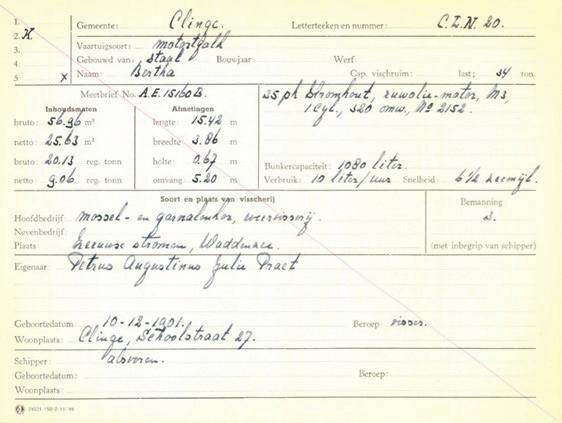 1. Gemeente: Clinge. Letterteeken en nummer: C.L.N. 20.
2. K.
3. Vaartuigsoort: motortjalk
4. Gebouwd van: staal Bouwjaar: Werf:
5 x Naam: Bertha Cap. vischruim: last; 34 ton.
Meetbrief No. A.E. 15160 B.
Inhoudsmaten Afmetingen
bruto: 56.96 m³ lengte: 15.42 m
netto: 25.63 m³ breedte: 3.86 m
bruto: 20.13 reg. tonn holte: 0.67 m
netto: 9.06 reg. tonn omvang: 5.20 m
25 pk Stromhout, ruwolie-motor, M3,
1 Cyl., 320 omw, No 2152.
Bunkercapaciteit: 1080 liter.
Verbruik: 10 liter/uur Snelheid 6½ zeemijl.
Soort en plaats van visscherij
Hoofdbedrijf: mossel- en garnalenkor, visserij.
Nevenbedrijf:
Plaats: Zeeuwse stromen, Waddenzee.
Bemanning
2.
(met inbegrip van schipper)
Eigenaar: Petrus Augustinus Julie Praet
Geboortedatum: 10-12-1901. Beroep: visser.
Woonplaats: Clinge, Schoolstraat 27.
Schipper: alsvoren.
Geboortedatum: Beroep:
Woonplaats: